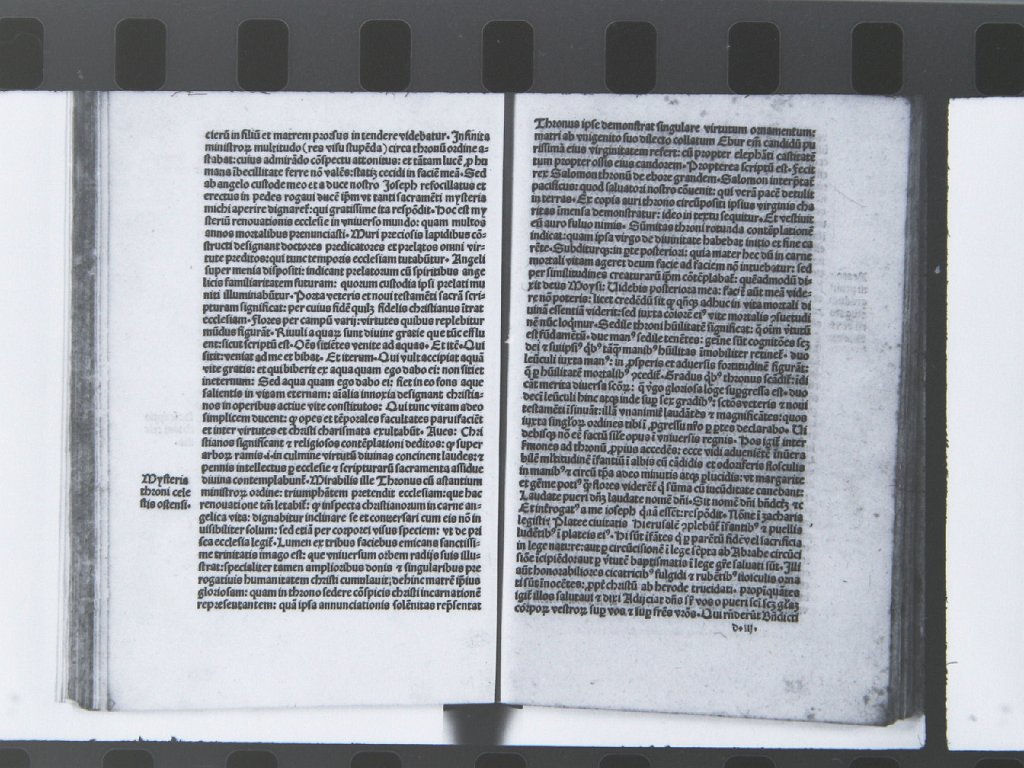 cierũ in filiũ et matrem prorsus in tendere videbatur. Infinita
ministroꝝ multitudo (res visu stupẽda) circa thronũ ordine a-
stabat: cuius admirãdo cõspectu attonitus: et tãtam lucẽ ꝓ hu
mana ĩbecillitate ferre nõ valẽs: statiꝫ cecidi in faciẽ meã. Sed
ab angelo custode meo et a duce nostro Joseph refocillatus et
erectus in pedes rogaui ducẽ ip̃m vt tanti sacramẽti mysteria
michi aperire dignareť: qui gratissime ita respõdit. Hoc est my
steriũ renouationis ecclesie in vniuerso mundo: quam multos
annos mortalibus prenunciasti. Muri preciosis lapidibus cõ-
structi designant doctores predicatores et prelatos omni vir-
tute preditos: qui tunc temporis ecclesiam tutabũtur. Angeli
super menia dispositi: indicant prelatorum cũ spiritibus ange
licis familiaritatem futuram: quorum custodia ipsi prelati mu
niti illuminabũtur. Porta veteris et noui testamẽti sacrã scri-
pturam significat: per cuius fidẽ quilꝫ fidelis christianus ĩtrat
ecclesiam. Flores per campũ varij: virtutes quibus replebitur
mũdus figurãt. Riuuli aquaꝝ: sunt diuine gratie que tũc efflu
ent: sicut scriptũ est. Oẽs sitiẽtes venite ad aquas. Et itẽ. Qui
sitit: veniat ad me et bibat. Et iterum. Qui vult accipiat aquã
vite gratis: et qui biberit ex aqua quam ego dabo ei: non sitiet
ineternum: Sed aqua quam ego dabo ei: fiet in eo fons aque
salientis in vitam eternam: aĩalia innoxia designant christia-
nos in operibus actiue vite constitutos: Qui tunc vitam adeo
simplicem ducent: ꝙ opes et tẽporales facultates paruifaciẽt
et inter virtutes et christi charismata exultabũt. Aues: Chri
stianos significant ⁊ religiosos contẽplationi deditos: ꝙ super
arboꝝ ramis .i. in culmine virtutũ diuinas concinent laudes: ⁊
pennis intellectus ꝑ ecclesie ⁊ scripturarũ sacramenta assidue
diuina contemplabunť. Mirabilis ille Thronus cũ astantium
Mysteria
throni cele
stis ostensi.
ministroꝝ ordine: triumphãtem pretendit ecclesiam: que hac
renouatione tm̃ letabiť: ꝙ inspecta christianorum in carne an-
gelica vita: dignabitur inclinare se et conuersari cum eis nõ in
uisibiliter solum: sed etiã per corpori visus speciem: vt de pri
sca ecclesia legiť. Lumen ex tribus faciebus emicans sanctissi-
me trinitatis imago est: que vniuersum orbem radijs suis illu-
strat: specialiter tamen amplioribus donis ⁊ singularibus pre
rogatiuis humanitatem christi cumulauit: dehinc matrẽ ip̃ius
gloriosam: quam in throno sedere cõspicis christi incarnationẽ
representantem: quã ipsa annunciationis solẽnitas rep̃sentat
Thronus ipse demonstrat singulare virtutum ornamentum:
matri ab vnigenito suo dilecto collatum Ebur em̃ candidũ pu
rissimã eius virginitatem refert: cũ propter elephãti castitatẽ
tum propter ossis eius candorem. Propterea scriptũ est. Fecit
rex Salomon thronũ de ebore grandem. Salomon interp̃tať
pacificus: quod saluatori nostro cõuenit: qui verã pacẽ detulit
in terras. Ex copia auri throno circũpositi ipsius virginis cha
ritas ĩmensa demonstratur: ideo in textu sequitur. Et vestiuit
eũ auro fuluo nimis. Sũmitas throni rotunda contẽplationẽ
indicat: quam ipsa virgo de diuinitate habebat initio et fine ca
rẽte. Subditurqꝫ: in ꝑte posteriori: quia mater hec dũ in carne
mortali vitam ageret deum facie ad faciem nõ intuebatur: sed
per similitudines creaturarũ ip̃m cõtẽplabať: quẽadmodũ di-
xit deus Moysi: Videbis posteriora mea: faciẽ aũt meã vide-
re nõ poteris: licet credẽdũ sit ꝙ adhuc in vita mortali di
uinã essentiã viderit: sed iuxta cõiorẽ vite mortalis ꝯsuetudi
nẽ nũc loqĩmur. Sedile throni hũilitatẽ significat: q̃ oĩm v̾tutũ
est fũdamẽtũ. due man⁹ sedile tenẽtes: gemĩe sũt cognitões
dei ⁊ suiipsi⁹ qb⁹ tãꝙ manib⁹ hũilitas ĩmobiliter retineť. duo
leũculi iuxta man⁹: in ꝓsperis et aduersis fortitudinẽ figurãt:
q̃ ꝑ hũilitatẽ mortalib⁹ ꝯcediť. Gradus qb⁹ thronus scãdiť: idi
cat merita diuersa scõꝝ: q̃ v̾go gloriosa lõge sup̃gressa est. duo
decĩ leũculi hinc atqꝫ inde sup̃ sex gradib⁹: sctõs veteris ⁊ noui
testamẽti ĩsinuãt: illã vnanimiť laudãtes ⁊ magnificãtes: quos
iuxta singloꝝ ordines tibi ĩ ꝓgressu nr̃o ꝑ ꝑtes declarabo. Vi
debisqꝫ nõ eẽ factũ sile opus ĩ vniuersis regnis. Hos igiť inter
sermones ad thronũ ꝓpius accedẽs: ecce vidi aduenĩẽte ĩnũera
bilẽ mltitudinẽ ĩfantiũ ĩ albis cũ cãdidis et odoriferis flosculis
in manib⁹ ⁊ circũ tp̃a adeo minutis atqꝫ plucidis: vt margarite
et gẽme poti⁹ q̃ flores viderẽť q̃ sũma cũ iucũditate canebant:
Laudate pueri dñꝫ laudate nomẽ dñi. Sit nomẽ dñi bñdictꝫ ⁊c
Et ĩterrogat⁹ a me ioseph qnã essẽt: respõdit. Nõne ĩ zacharia
legisti: Platee ciuitatis Hierusalẽ ꝯplebũť ĩfantib⁹ ⁊ puellis
ludẽtib⁹ ĩ plateis ei⁹. Hi sũt ĩfãtes q ꝑ parẽtũ fidẽ vel sacrificia
in lege nature: aut ꝑ circũcisionẽ ĩ lege sc̃pta ab Abrahe circũci
siõe ĩcipiẽdo: aut ꝑ v̾tutẽ baptismatis ĩ lege gr̃e saluati sũt. Illi
aũt honorabiliores cicatricib⁹ fulgidi ⁊ rubẽtib⁹ flosculis orna
ti sũt ĩnocẽtes: ꝓpť christũ ab herode trucidati. propĩquãtes
igiť illos salutaui ⁊ dixi Adijciat dñs sup̃ vos o pueri sci
corpoꝝ vestroꝝ sup̃ vos ⁊ sup̃ fr̃es vr̃os. Qui rñderũt Bñdicti
d.iij.